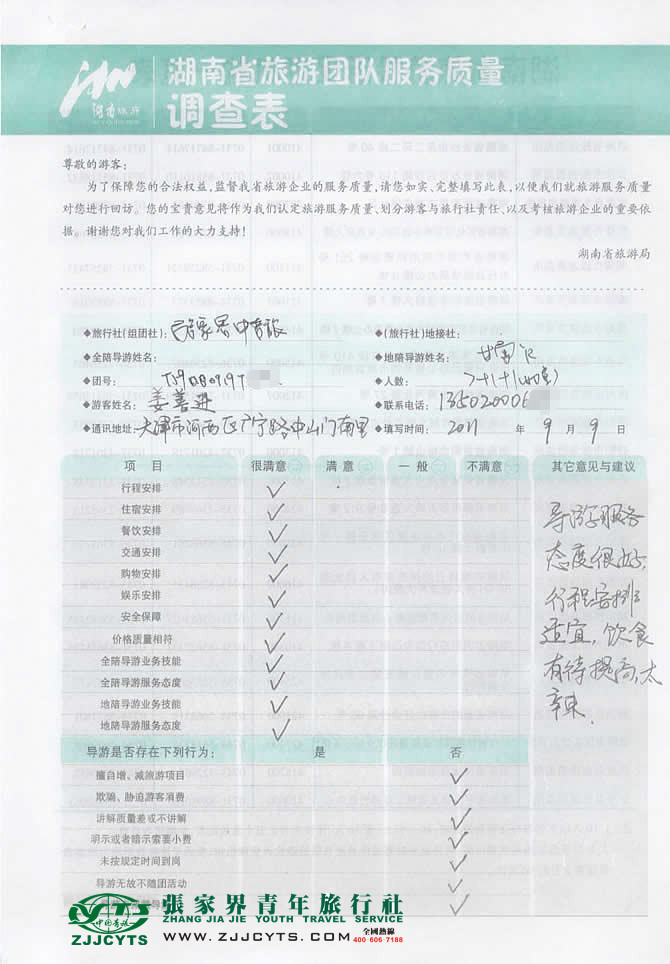 湖南旅游
湖南省旅游团队服务质量
调查表
尊敬的游客:
为了保障您的合法权益,监督我省旅游企业的服务质量,请您如实、完整填写此表,以便我们就旅游服务质量
对您进行回访。您的宝贵意见将作为我们认定旅游服务质量、划分游客与旅行社责任、以及考核旅游企业的重要依
据。谢谢您对我们工作的大力支持!
湖南省旅游局
◆旅行社(组团社): 张家界中青旅 ◆(旅行社)地接社:
◆全陪导游姓名: ◆地陪导游姓名:
◆团号: ◆人数:
◆游客姓名: 姜善进 ◆联系电话: 135020006
◆通讯地址: 天津市河西区广宁路中山门南里 ◆填写时间: 2011 年 9 月 9 日
项 目 很满意 满 意 一 般 不满意 其它意见与建议
行程安排 ✓
住宿安排 ✓
餐饮安排 ✓
交通安排 ✓
购物安排 ✓
娱乐安排 ✓
安全保障 ✓
价格质量相符 ✓
全陪导游业务技能 ✓
全陪导游服务态度 ✓
地陪导游业务技能 ✓
地陪导游服务态度 ✓
导游服务
态度很好,
行程安排
适宜,饮食
有待提高,太
辛辣.
导游是否存在下列行为: 是 否
擅自增、减旅游项目 ✓
欺骗、胁迫游客消费 ✓
讲解质量差或不讲解 ✓
明示或者暗示索要小费 ✓
未按规定时间到岗 ✓
导游无故不随团活动 ✓
✓
中国青旅
ZJJCYTS
張家界青年旅行社
ZHANG JIA JIE YOUTH TRAVEL SERVICE
WWW.ZJJCYTS.COM 全國熱線 400-606-7188